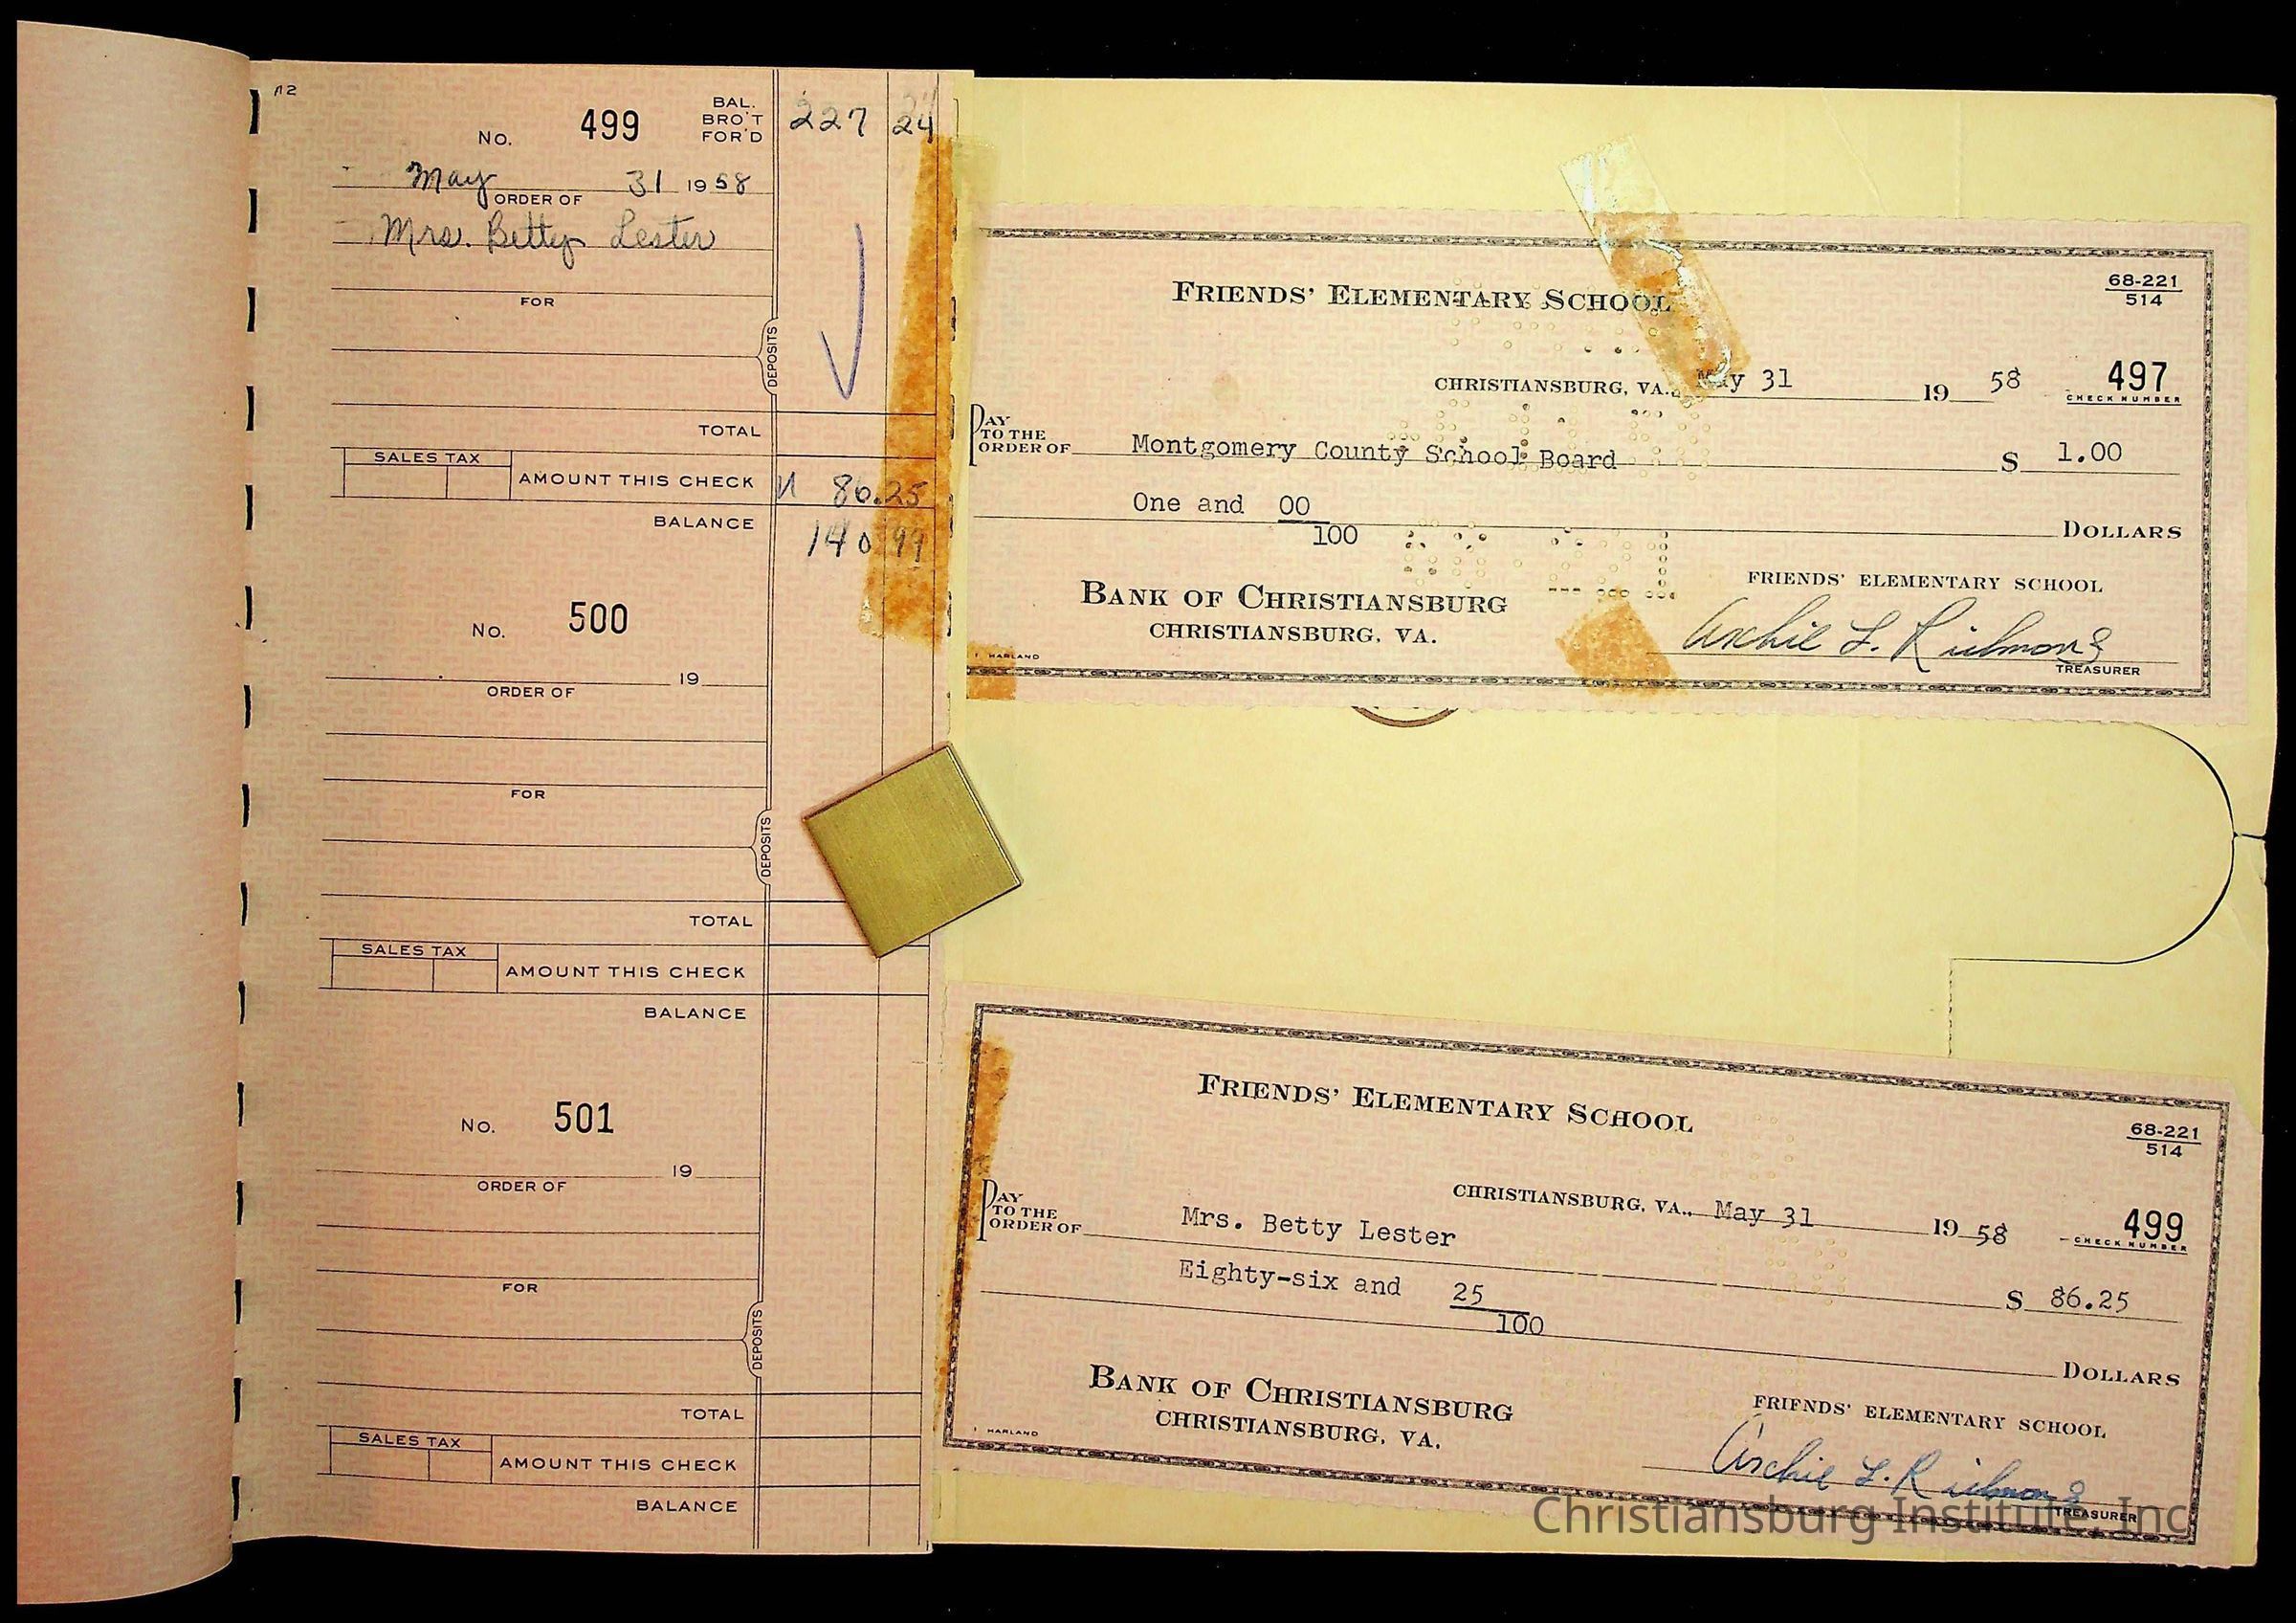 No. 499 BAL. BRO'T FOR'D 227 24
May 31 1958
ORDER OF
Mrs. Betty Lester
FOR
DEPOSITS
TOTAL
SALES TAX
AMOUNT THIS CHECK 86.25
BALANCE 140 99
No. 500
19
ORDER OF
FOR
DEPOSITS
TOTAL
SALES TAX
AMOUNT THIS CHECK
BALANCE
No. 501
19
ORDER OF
FOR
DEPOSITS
TOTAL
SALES TAX
AMOUNT THIS CHECK
BALANCE
FRIENDS' ELEMENTARY SCHOOL
68-221
514
CHRISTIANSBURG, VA., May 31 19 58 497
CHECK NUMBER
PAY TO THE ORDER OF Montgomery County School Board $ 1.00
One and 00
100 DOLLARS
BANK OF CHRISTIANSBURG
CHRISTIANSBURG, VA.
FRIENDS' ELEMENTARY SCHOOL
Archie L. Richmond
TREASURER
HARLAND
FRIENDS' ELEMENTARY SCHOOL
68-221
514
CHRISTIANSBURG, VA., May 31 19 58 499
CHECK NUMBER
PAY TO THE ORDER OF Mrs. Betty Lester
Eighty-six and 25 $ 86.25
100
DOLLARS
BANK OF CHRISTIANSBURG
CHRISTIANSBURG, VA.
FRIENDS' ELEMENTARY SCHOOL
Archie L. Richmond
TREASURER
HARLAND
Christiansburg Institute, Inc